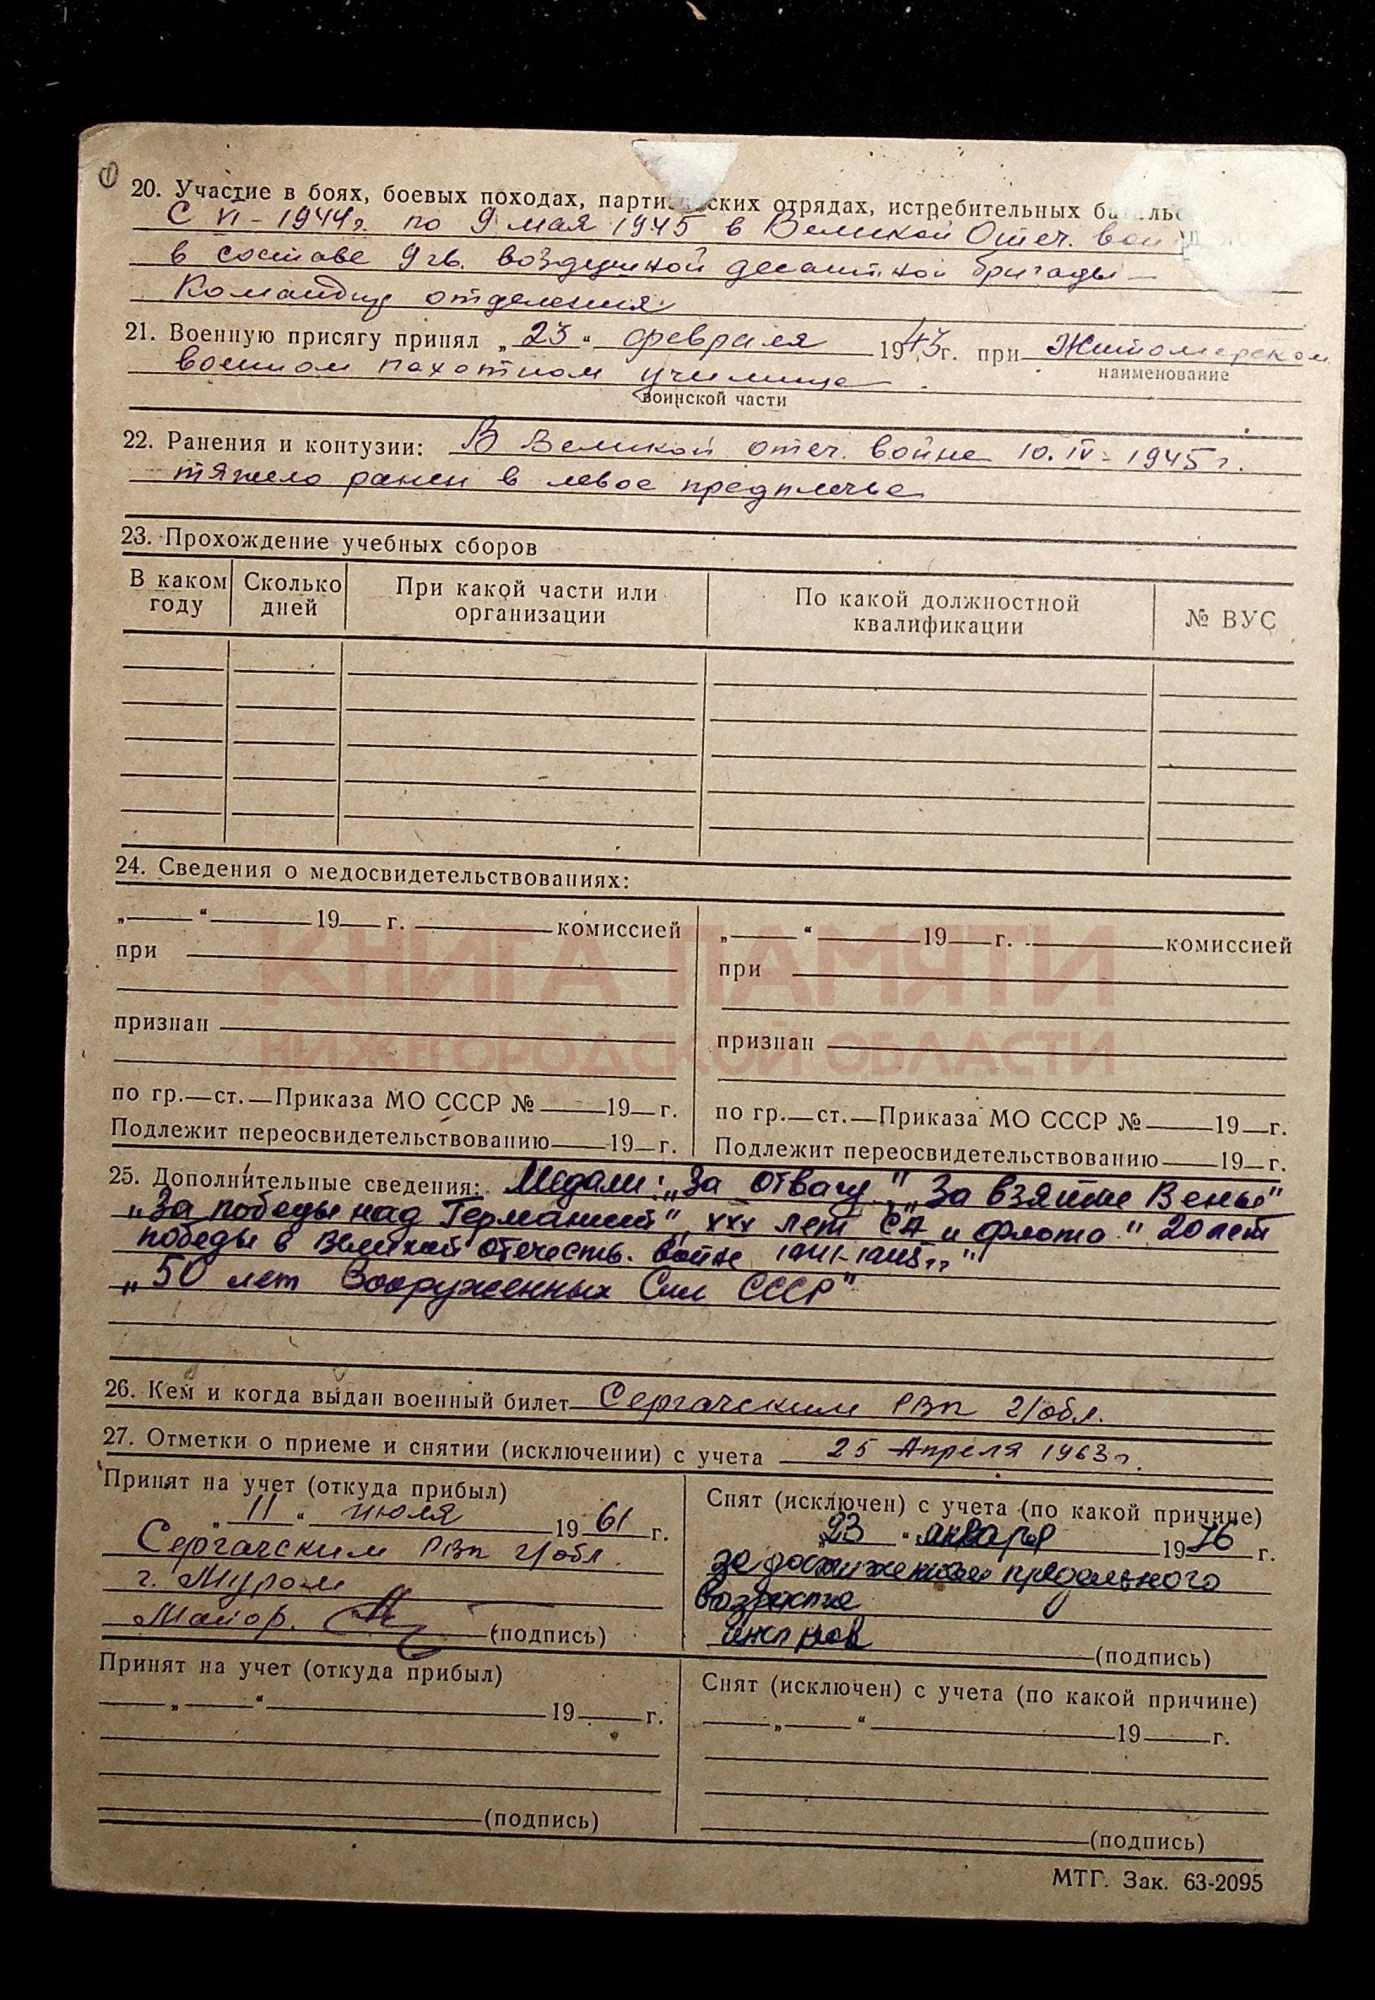 20. Участие в боях, боевых походах, парти ских отрядах, истребительных
С VI - 1944г. по 9 мая 1945 в Великой Отеч. вой
в составе 9 гв. воздушной десантной бригады —
Командир отделения
21. Военную присягу принял „ 23 “ февраля 1943г. при Житомирском
наименование
военном пехотном училище
воинской части
22. Ранения и контузии: В Великой отеч. войне 10.IV-1945г.
тяжело ранен в левое предплечье
23. Прохождение учебных сборов
В каком году Сколько дней При какой части или организации По какой должностной квалификации № ВУС
24. Сведения о медосвидетельствованиях:
„ “ 19 г. комиссией „ “ 19 г. комиссией
при при
КНИГА ПАМЯТИ
признан признан
НИЖЕГОРОДСКОЙ ОБЛАСТИ
по гр. ст. Приказа МО СССР № 19 г. по гр. ст. Приказа МО СССР № 19 г.
Подлежит переосвидетельствованию 19 г. Подлежит переосвидетельствованию 19 г.
25. Дополнительные сведения: Медали: „За отвагу", „За взятие Вены"
„За победы над Германией", XXX лет СА и флота" 20 лет
победы в Великой отечеств. войне 1941-1945гг"
„50 лет Вооруженных Сил СССР"
26. Кем и когда выдан военный билет Сергачским РВК Г/обл.
27. Отметки о приеме и снятии (исключении) с учета 25 Апреля 1963г.
Принят на учет (откуда прибыл) Снят (исключен) с учета (по какой причине)
„ 11 “ июля 1961 г. „23 “ января 1976 г.
Сергачским РВК Г/обл. за достижением предельного
г. Муром возраста
Майор. (подпись) (подпись)
Принят на учет (откуда прибыл) Снят (исключен) с учета (по какой причине)
„ “ 19 г. „ “ 19 г.
(подпись) (подпись)
МТГ. Зак. 63-2095